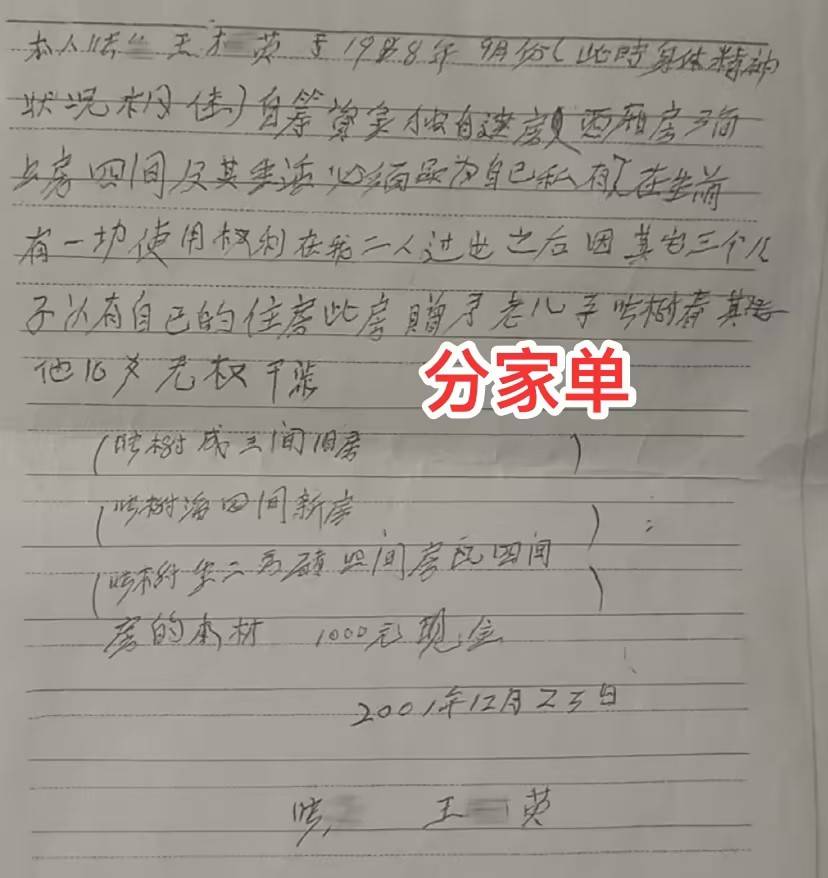 本人 王 英于1988年9月份(此時身体精神
状况相佳)自筹資金独自建房 西厢房三间
上房四间及其生活必须品为自己私有 在生前
有一切使用权利在我二人过世之后因其它三个儿
子以有自已的住房此房赠予老儿子 树春其
他 无权干涉
分家单
( 树成三间旧房 )
( 树海四间新房 )
( 树 四间房 四间 )
房的木材 1000元现金
2001年12月23日
王 英